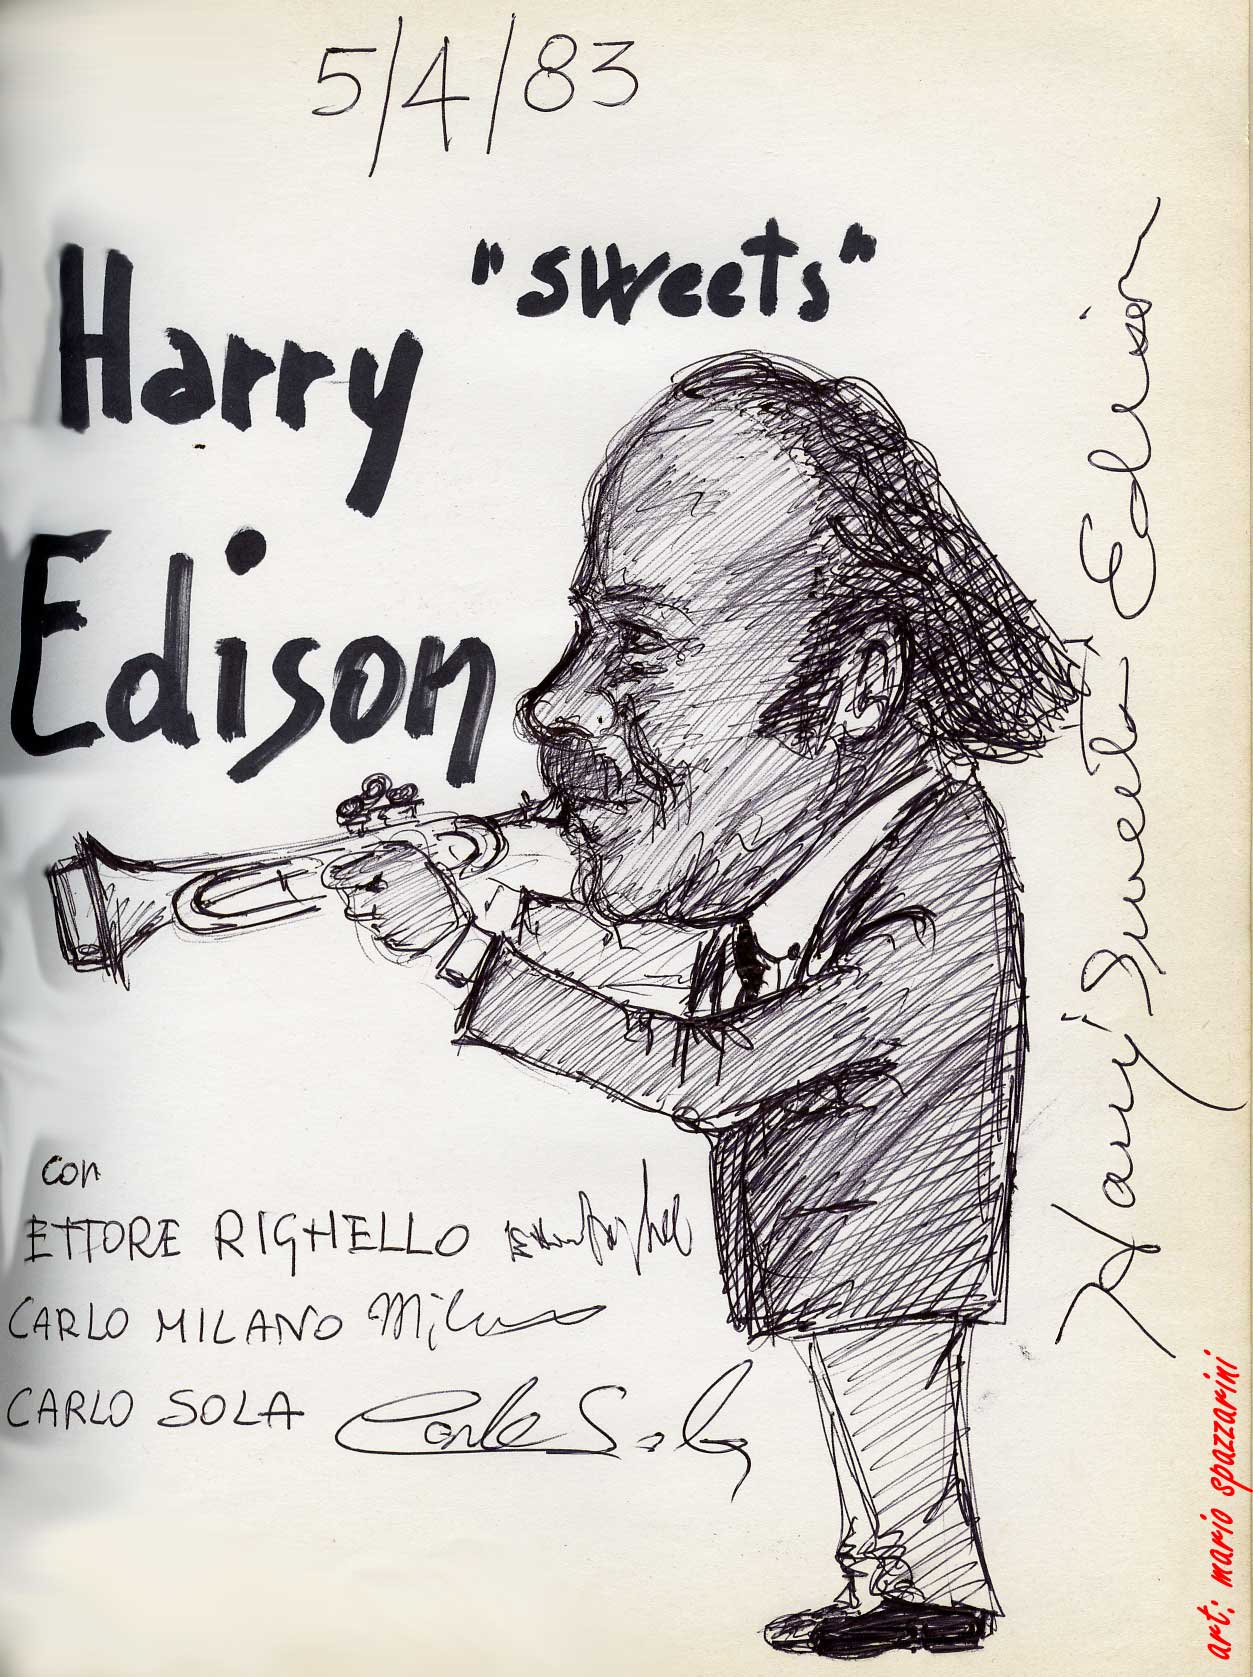 5/4/83
Harry "sweets"
Edison
con
ETTORE RIGHELLO
CARLO MILANO Milano
CARLO SOLA Carlo Sola
Harry "Sweets" Edison
art: mario spazzarini